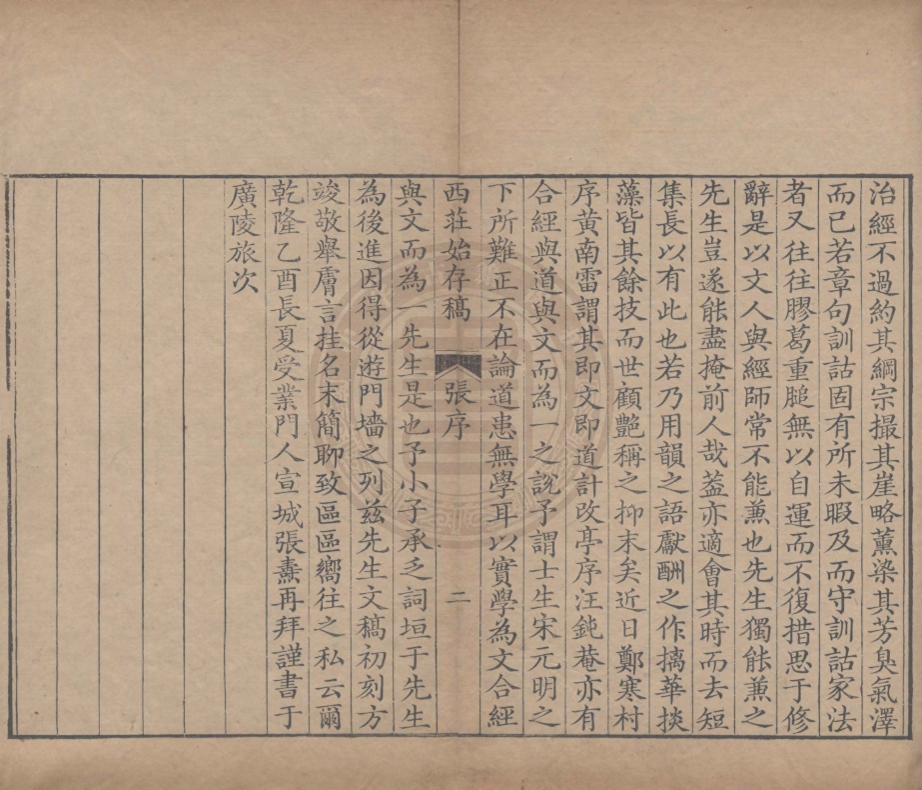 治經不過約其綱宗撮其崖略薰染其芳臭氣澤
而已若章句訓詁固有所未暇及而守訓詁家法
者又往往膠葛重膇無以自運而不復措思于修
辭是以文人與經師常不能兼也先生獨能兼之
先生豈遂能盡掩前人哉葢亦適會其時而去短
集長以有此也若乃用韻之語獻酬之作摛華掞
藻皆其餘技而世顧艷稱之抑末矣近日鄭寒村
序黃南雷謂其即文即道計改亭序汪鈍菴亦有
合經與道與文而為一之說予謂士生宋元明之
下所難正不在論道患無學耳以實學為文合經
西莊始存稿 張序 二
與文而為一先生是也予小子承乏詞垣于先生
為後進因得從遊門墻之列茲先生文稿初刻方
竣敬舉膚言挂名末簡聊致區區嚮往之私云爾
乾隆乙酉長夏受業門人宣城張燾再拜謹書于
廣陵旅次